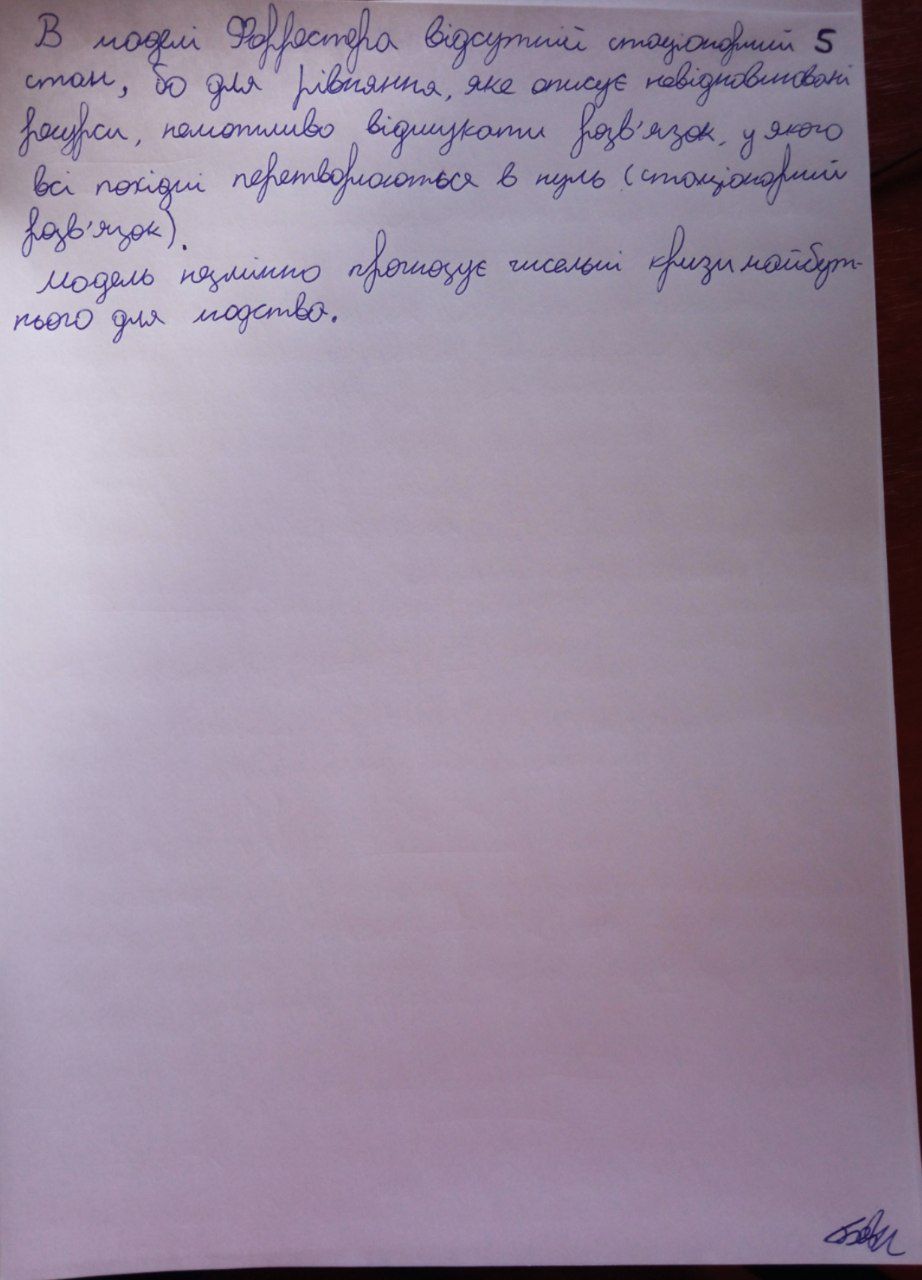 В моделі Форрестера відсутній стаціонарний 5
стан, бо для рівняння, яке описує невідновлювані
ресурси, неможливо відшукати розв'язок, у якого
всі похідні перетворюються в нуль (стаціонарний
розв'язок).
Модель незмінно прогнозує чисельні кризи майбут-
нього для людства.